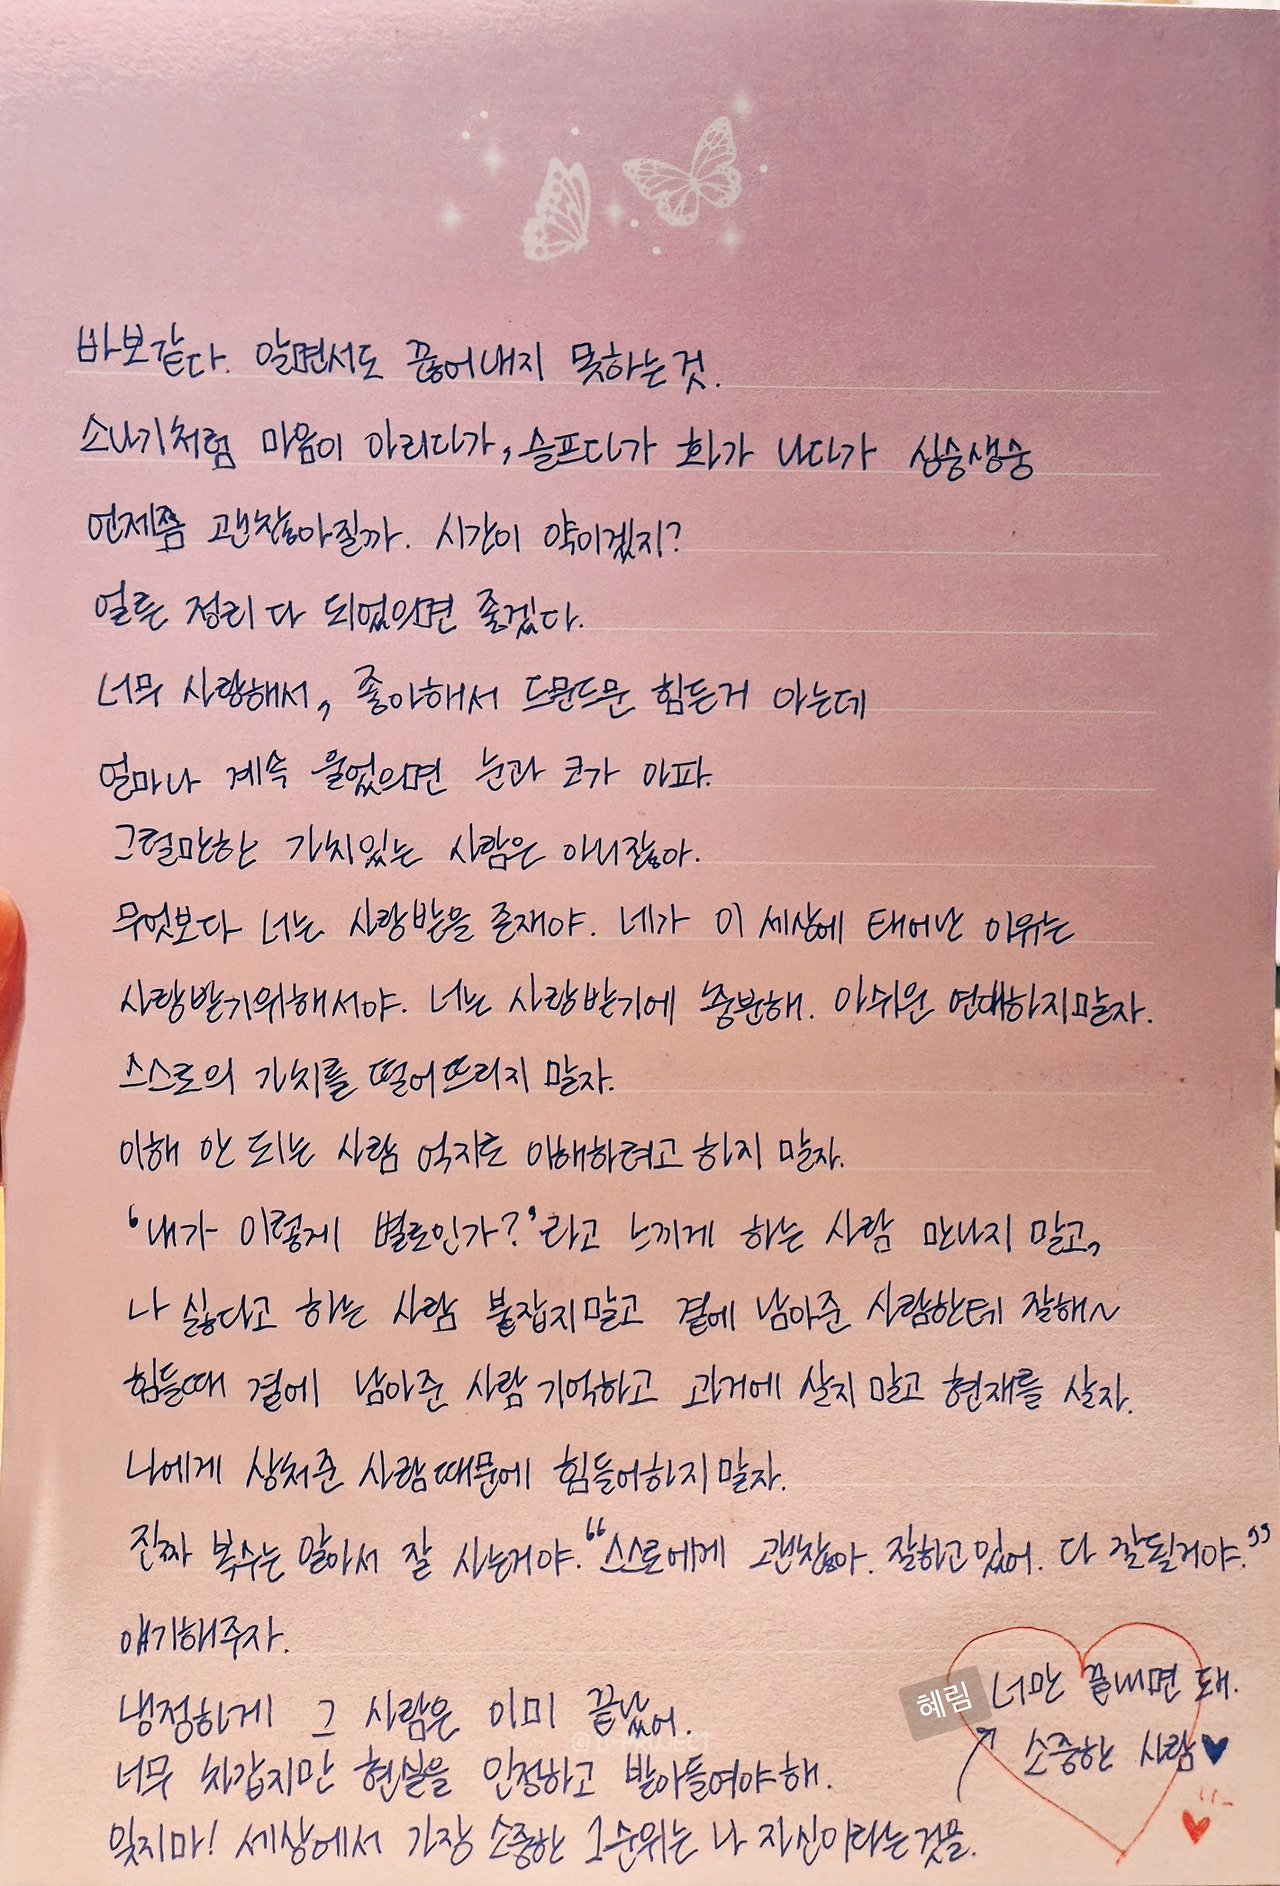 바보같다. 알면서도 끊어내지 못하는것.
소나기처럼 마음이 아리다가, 슬프다가 화가 나다가 싱숭생숭
언제쯤 괜찮아질까. 시간이 약이겠지?
얼른 정리 다 되었으면 좋겠다.
너무 사랑해서, 좋아해서 드문드문 힘든거 아는데
얼마나 계속 울었으면 눈과 코가 아파.
그럴만한 가치있는 사람은 아니잖아.
무엇보다 너는 사랑받을 존재야. 네가 이 세상에 태어난 이유는
사랑받기위해서야. 너는 사랑받기에 충분해. 아쉬원 연애하지말자.
스스로의 가치를 떨어뜨리지 말자.
이해 안 되는 사람 억지로 이해하려고 하지 말자.
'내가 이렇게 별로인가?'라고 느끼게 하는 사람 만나지 말고,
나 싫다고 하는 사람 붙잡지말고 곁에 남아준 사람한테 잘해~
힘들때 곁에 남아준 사람 기억하고 과거에 살지 말고 현재를 살자.
나에게 상처준 사람때문에 힘들어하지말자.
진짜 복수는 알아서 잘 사는거야. "스스로에게 괜찮아. 잘하고있어. 다 잘될거야."
얘기해주자.
냉정하게 그 사람은 이미 끝났어.
혜림 너만 끝내면 돼.
너무 차갑지만 현실을 인정하고 받아들여야해.
소중한 사람♥
잊지마! 세상에서 가장 소중한 1순위는 나 자신이라는것을.